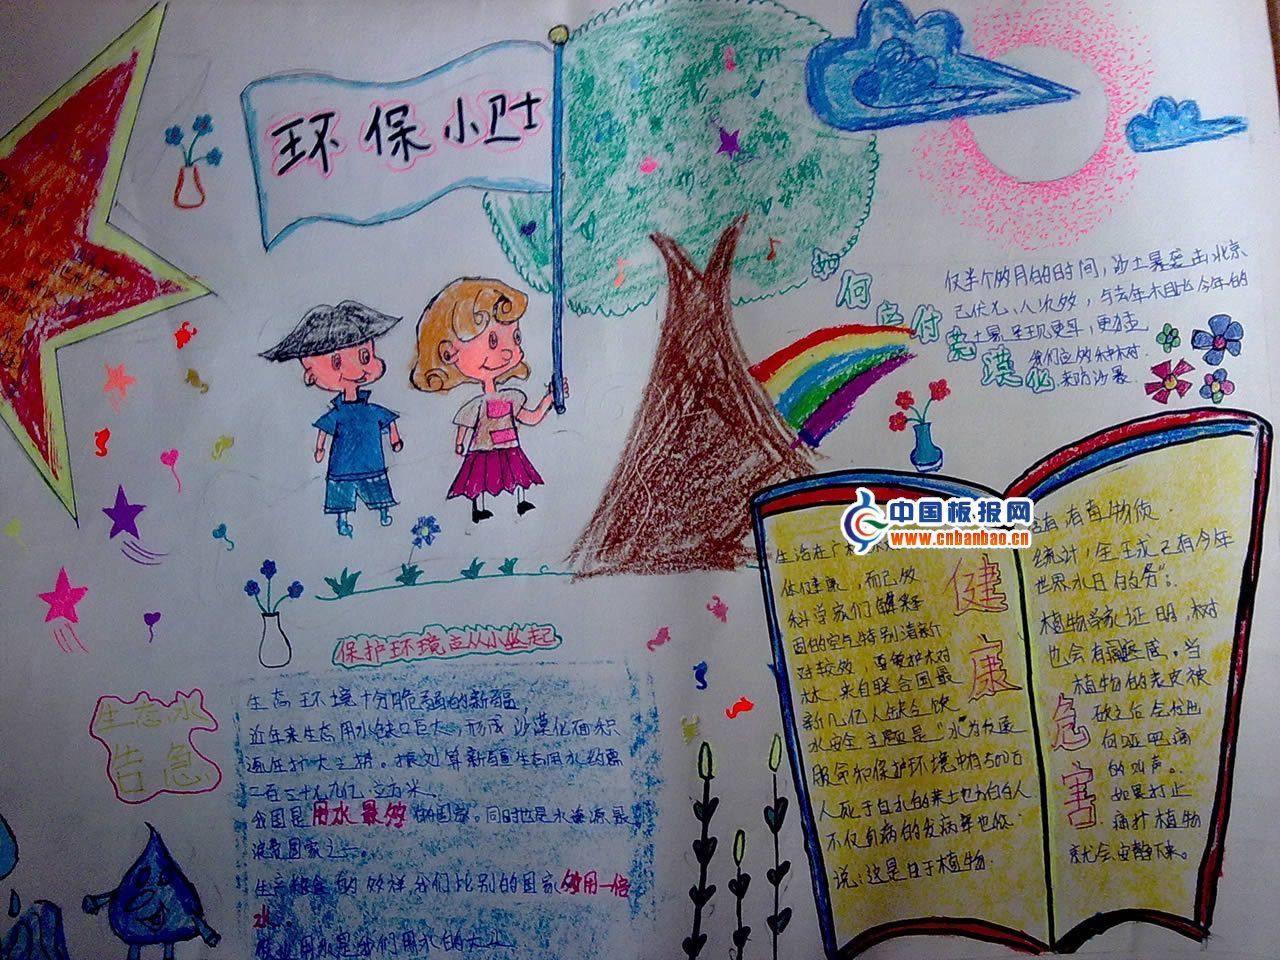 环保小卫士
如何应付荒漠化
仅半个多月的时间，沙土暴袭击北京
已依九、八次数，与去年相比今年的
土暴呈现更早，更猛
我们应多种树
来防沙暴
中国板报网
www.cnbanbao.cn
保护环境应从小做起
生态水
告急
生态环境十分脆弱的新疆，
近年来生态用水缺口巨大，形成沙漠化面积
逐年扩大之势。据测算新疆生态用水约需
二百三十九亿立方米。
我国是用水最多的国家。同时也是水资源最
浪费国家之一。
生产粮食的
我们比别的国家多用一倍
水。
健康
生活在广
体健康，而已多
科学家们解释
围的空气特别清新
对较多，尊爱护树对
大大，来自联合国最
新几亿人缺乏饮
水安全主题是“水为发展
服务和保护环境中有500万
人死于自水的
不仅
病的发病率也低
说：这是由于植物
危害
含有有毒物质
统计，全球已有今年
世界水日的务”；
植物学家证明，树
也会有
感。当
植物的老皮被
砍之后会发出
的叫声。
如果打止
痛针植物
就会安静下来。